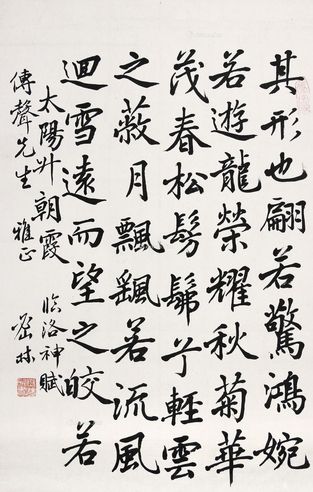 其形也翩若驚鴻婉
若遊龍榮耀秋菊華
茂春松髣髴兮輕雲
之蔽月飄颻若流風
迴雪遠而望之皎若
太陽升朝霞 臨洛神賦
傅聲先生 雅正